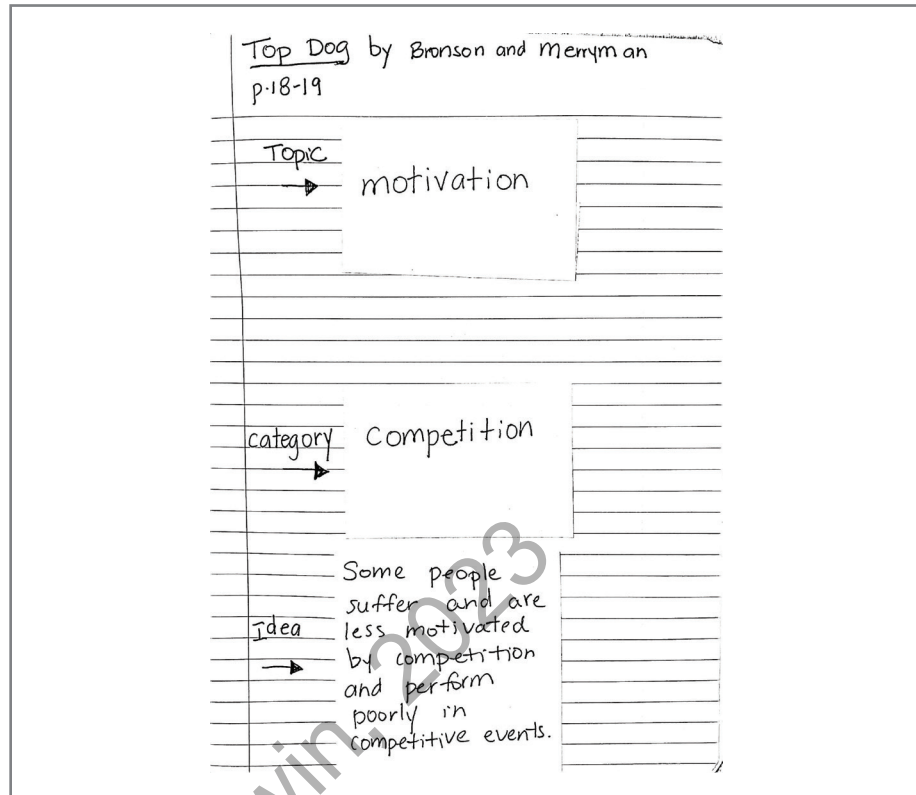 Top Dog by Bronson and Merryman
p.18-19
Topic
motivation
category
competition
Idea
Some people
suffer and are
less motivated
by competition
and perform
poorly in
competitive events.
win, 2023